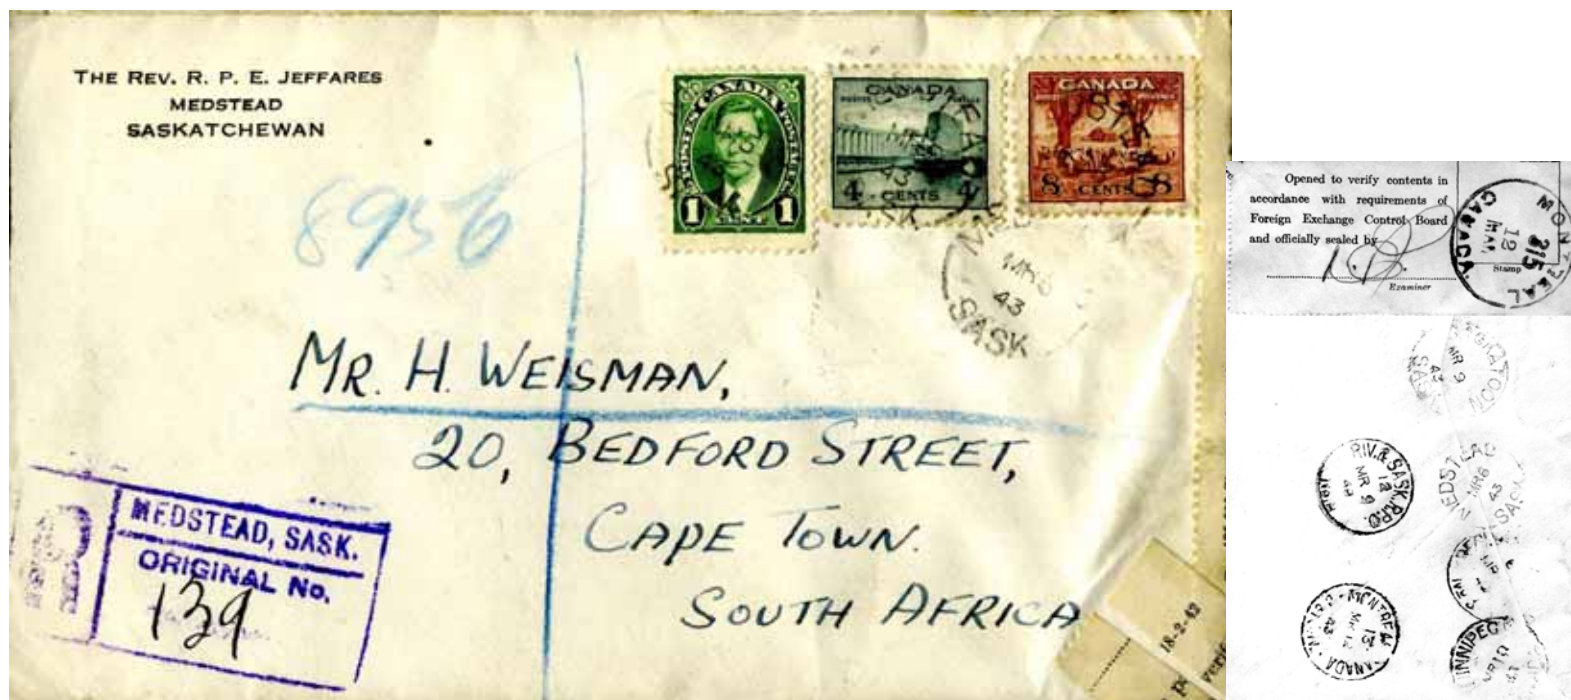 THE REV. R. P. E. JEFFARES
MEDSTEAD
SASKATCHEWAN
8956
POSTES CANADA POSTAGE
1 CENT 1
CANADA
POSTES POSTAGE
4 CENTS 4
CANADA
8 CENTS 8
MR 6
43
SASK
MR. H. WEISMAN,
20, BEDFORD STREET,
CAPE TOWN.
SOUTH AFRICA
R
MEDSTEAD, SASK.
ORIGINAL No.
139
18-2-42
Opened to verify contents in
accordance with requirements of
Foreign Exchange Control Board
and officially sealed by
Examiner
Stamp
MONTREAL
215
12
MAR
CANADA
SASKATOON
MR 9
43
SASK
RIV. & SASK. R.P.O.
12
MR 9
43
MEDSTEAD
MR 6
43
SASK
MONTREAL
13
43
CANADA
WINNIPEG
MR 10
43